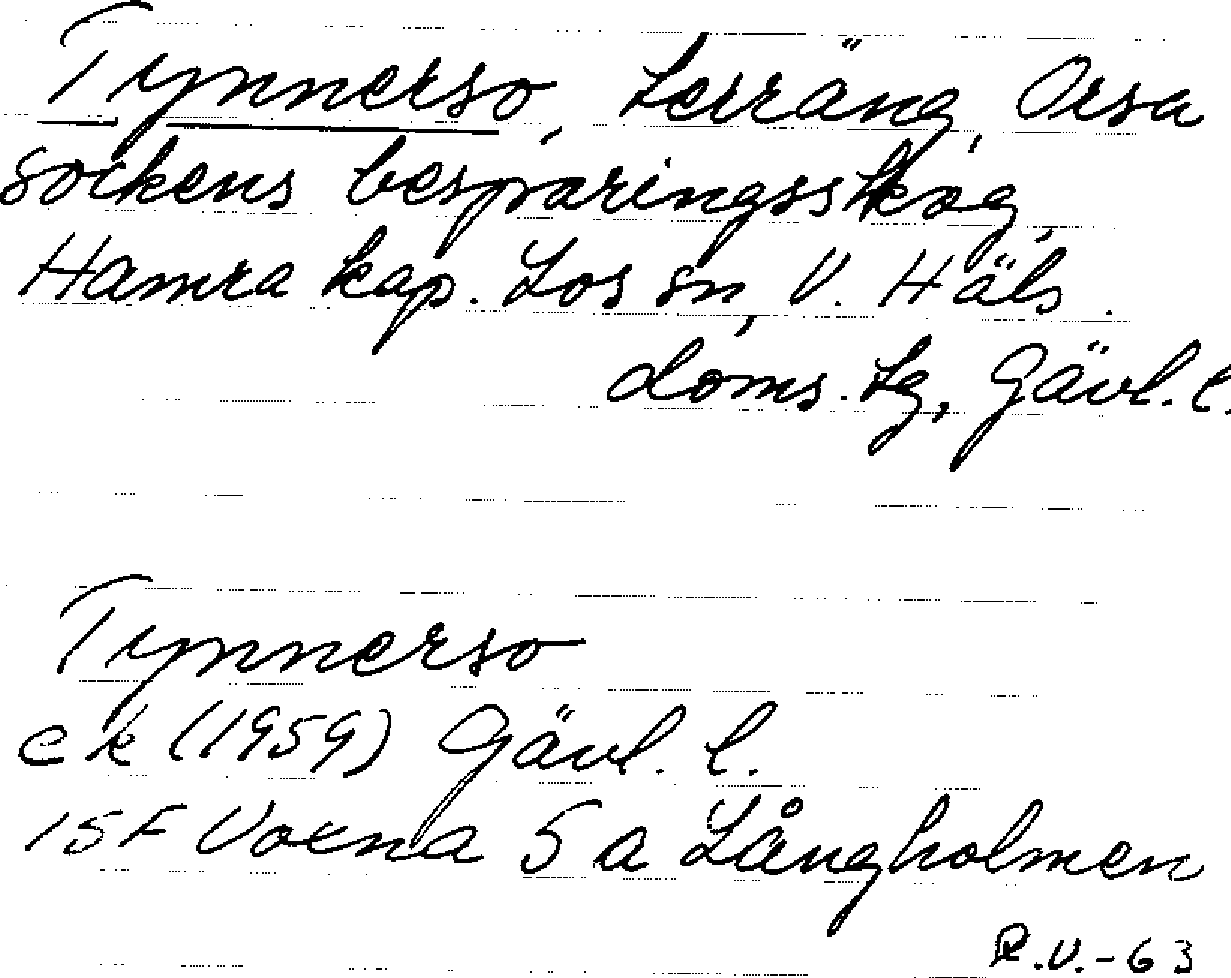 Tynnerso, terräng, Orsa
sockens besparingsskog,
Hamra kap. Los sn, V. Häls.
doms. tg, Gävl. l.
Tynnerso
ek (1959) Gävl. l.
15F Voxna 5 a Långholmen
R.V.-63